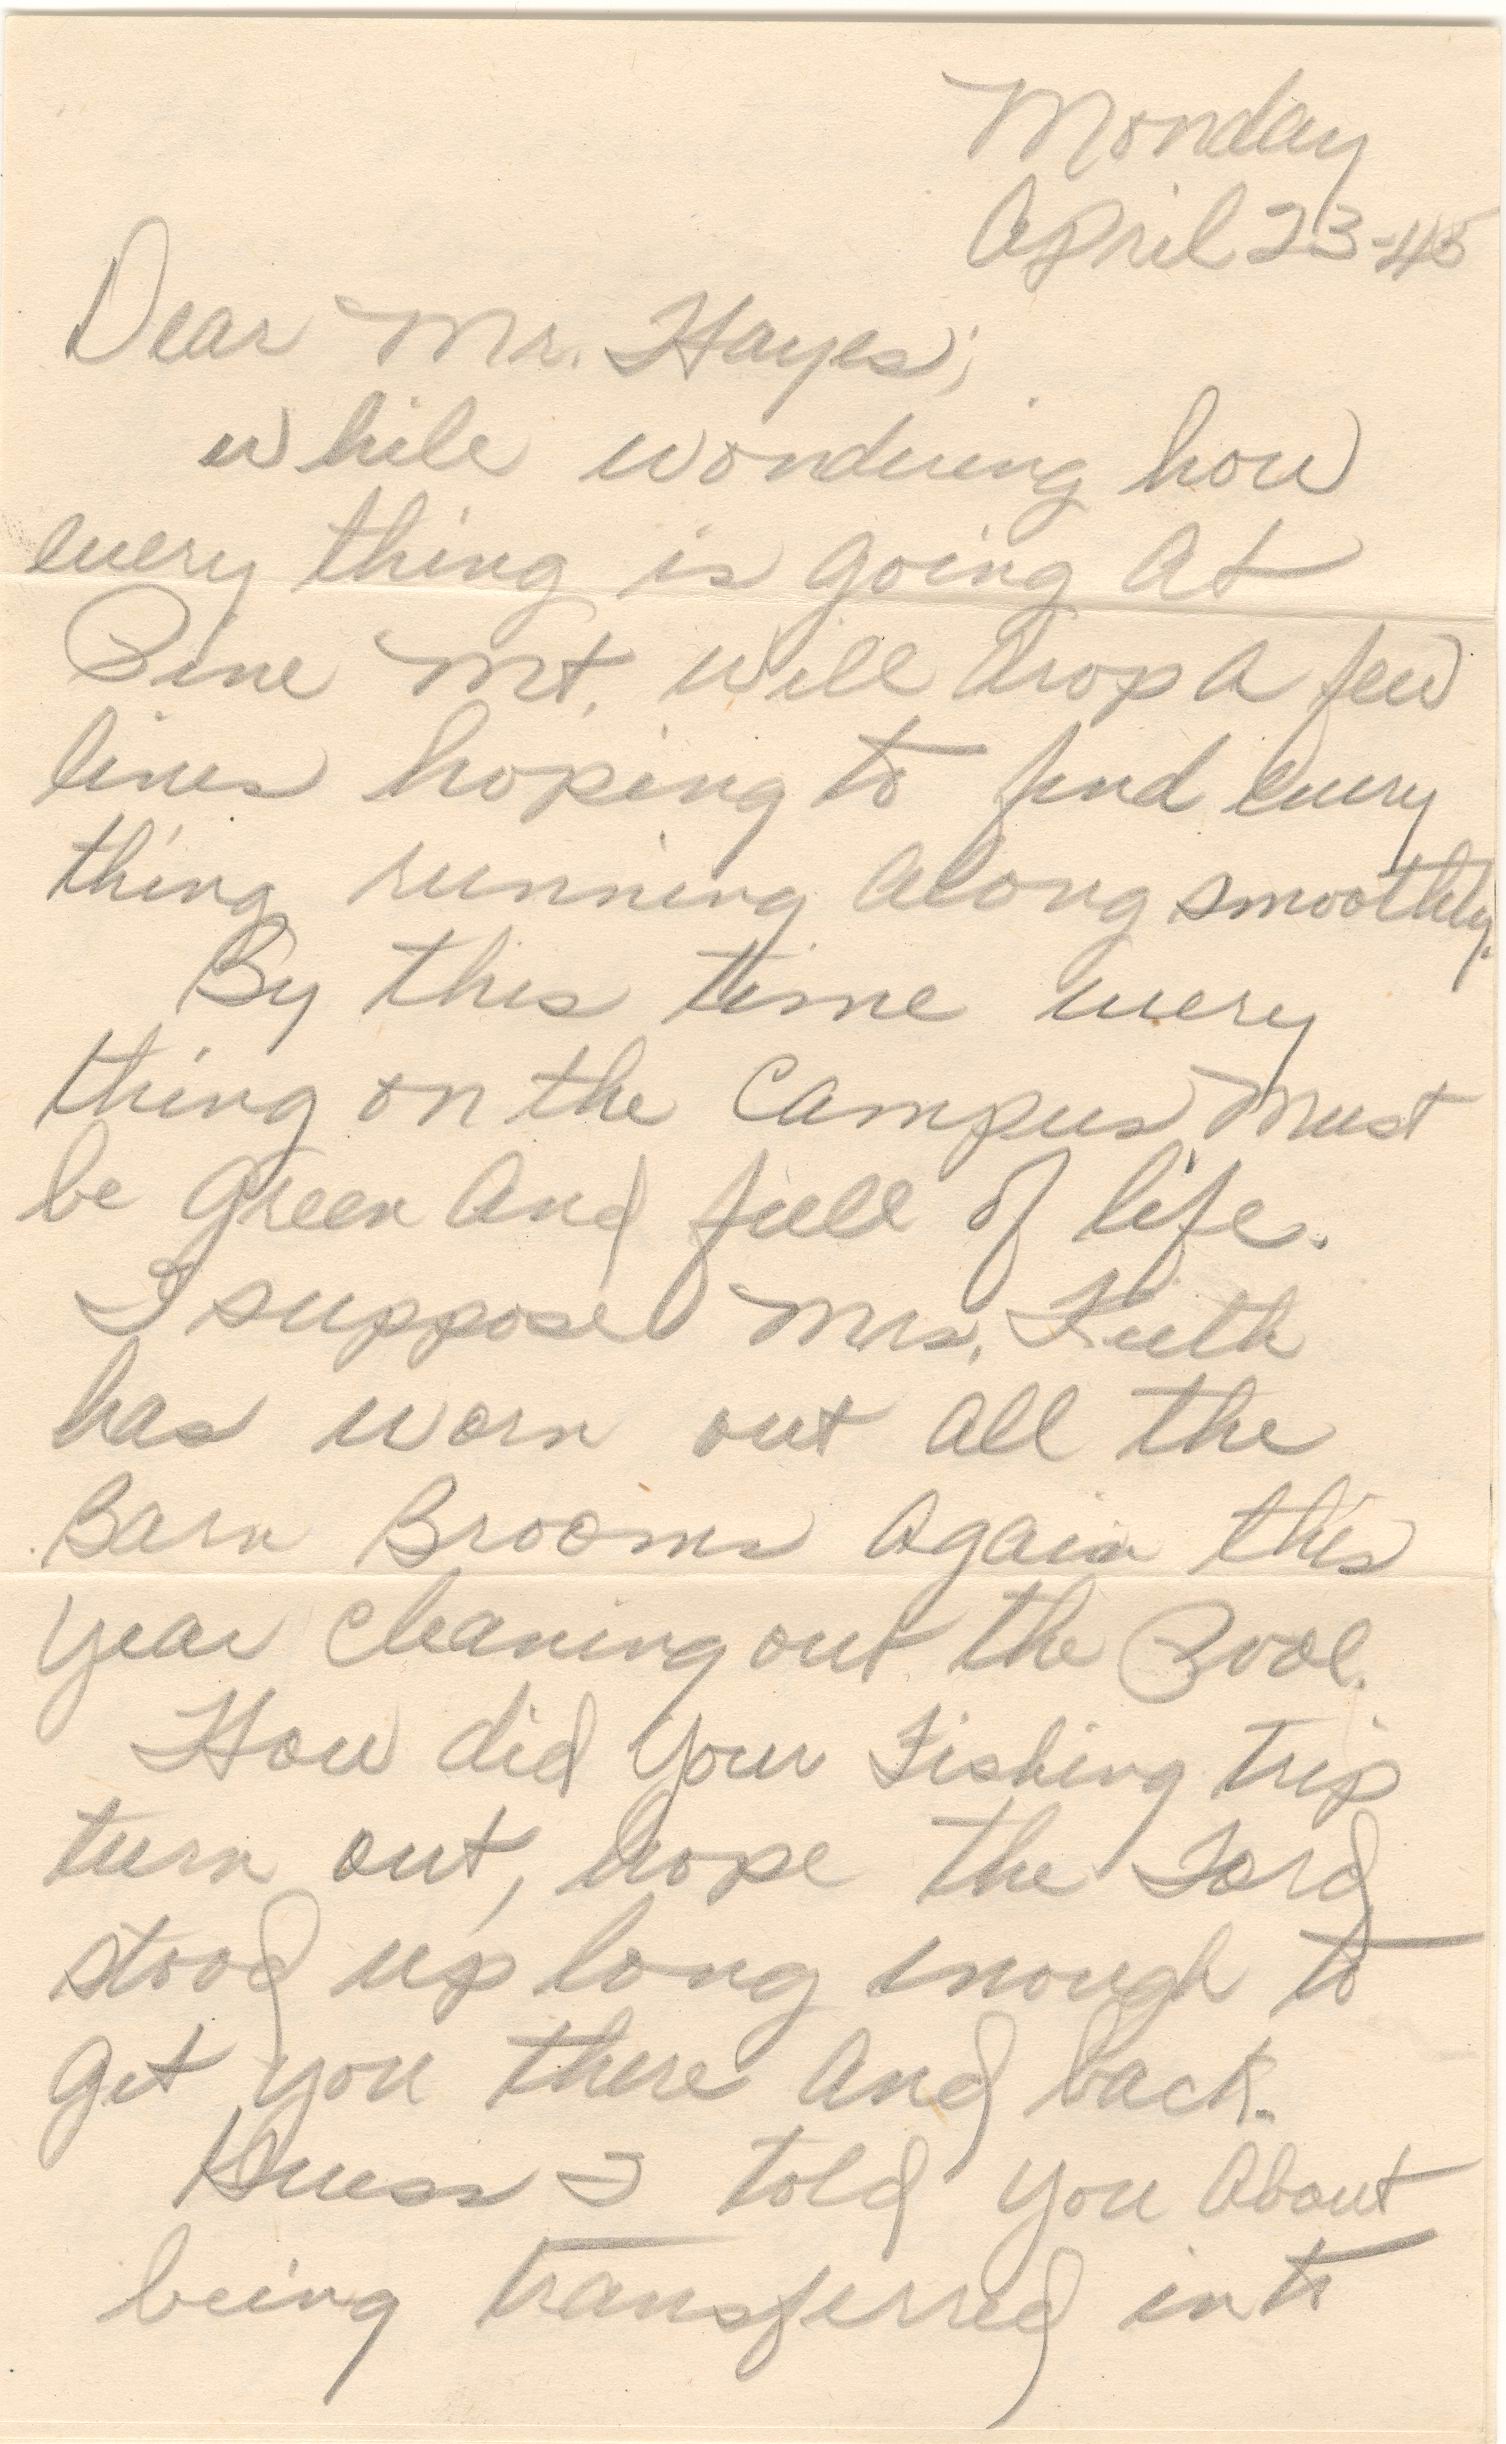 Monday
April 23-45
Dear Mr. Hayes;
while wondering how
every thing is going at
Pine Mt. will drop a few
lines hoping to find every
thing running along smoothly.
By this time every
thing on the Campus must
be green and full of life.
I suppose Mrs.
has worn out all the
Barn Brooms again this
year cleaning out the Pool.
How did your Fishing trip
turn out, hope the Ford
stood up long enough to
get you there and back.
Guess I told you about
being transferred into